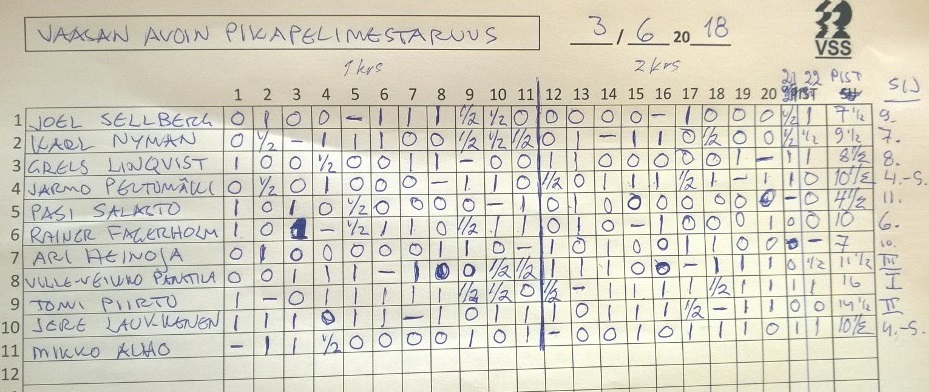 VAASAN AVOIN PIKAPELIMESTARUUS 3 / 6 20 18
VSS
1 krs 2 krs
1 2 3 4 5 6 7 8 9 10 11 12 13 14 15 16 17 18 19 20 21 22 PIST SIJ
1 JOEL SELLBERG 0 1 0 0 – 1 1 1 ½ ½ 0 0 0 0 0 – 1 0 0 0 ½ 1 7½ 9.
2 KARL NYMAN 0 ½ – 1 1 1 0 0 ½ ½ ½ 0 1 – 1 1 0 ½ 0 0 ½ ½ 9½ 7.
3 GRELS LINQVIST 1 0 0 ½ 0 0 1 1 – 0 0 1 1 0 0 0 0 0 1 – 1 1 8½ 8.
4 JARMO PELTOMÄKI 0 ½ 0 1 0 0 0 – 1 1 0 ½ 0 1 1 1 ½ 1 – 1 1 0 10½ 4.-5.
5 PASI SALASTO 1 0 1 0 ½ 0 0 0 0 – 1 0 1 0 0 0 0 0 0 0 – 0 4½ 11.
6 RAINER FAGERHOLM 1 0 1 – ½ 1 1 0 ½ 1 1 0 1 0 – 1 0 0 0 1 0 0 10 6.
7 ARI HEINOJA 0 1 0 0 0 0 0 1 1 0 – 1 0 1 0 0 1 1 0 0 0 – 7 10.
8 VILLE-VEIKKO PENTTILÄ 0 0 1 1 1 – 1 0 0 ½ ½ 1 1 1 0 0 – 1 1 1 0 ½ 11½ III
9 TOMI PIIRTO 1 – 0 1 1 1 1 1 ½ ½ 0 ½ – 1 1 1 1 ½ 1 1 1 1 16 I
10 JERE LAUKKENEN 1 1 1 0 1 – 1 1 1 0 1 1 0 1 1 1 ½ – 1 1 0 0 14½ II
11 MIKKO – 1 1 ½ 0 0 0 0 1 0 1 – 0 0 1 0 1 1 1 0 1 1 10½ 4.-5.
12